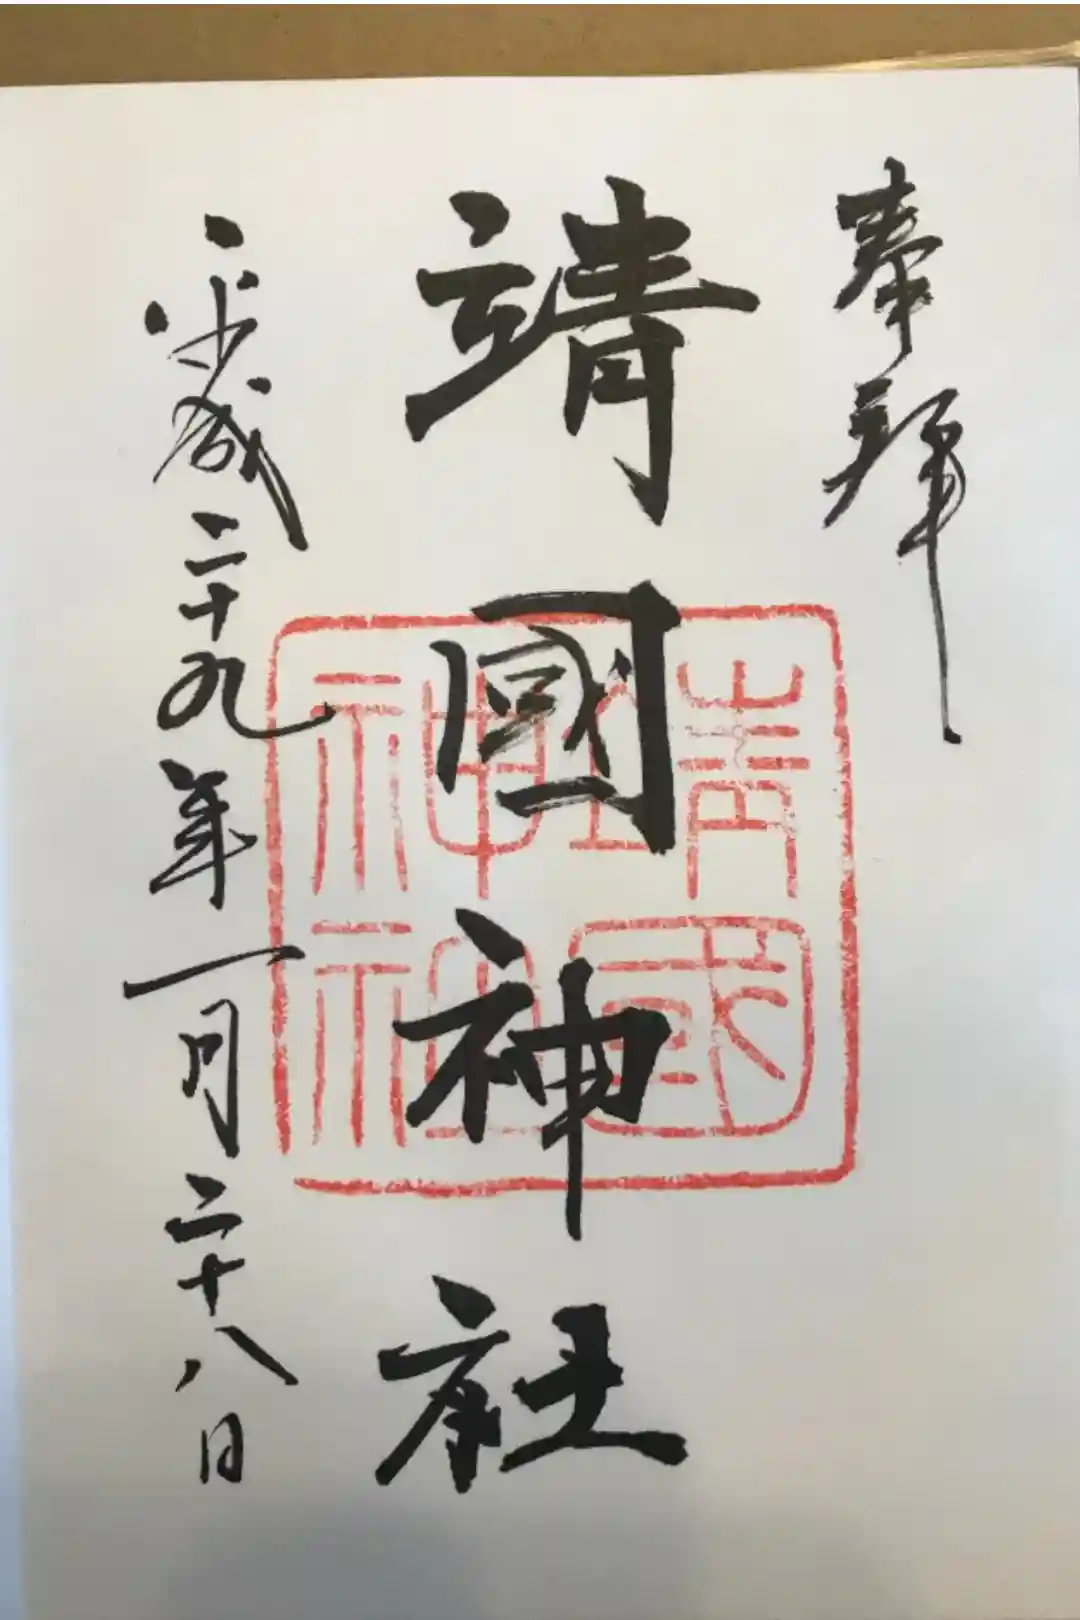 奉拝
靖國神社
平成二十九年一月二十八日
靖國
神社